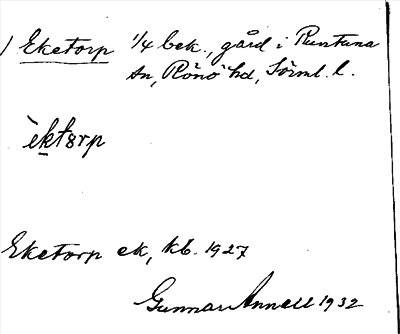 Eketorp 1/4 bek., gård i Runtuna
sn, Rönö hd, Sörml. l.
èktorp
Eketorp ek, kb. 1927
Gunnar Annell 1932